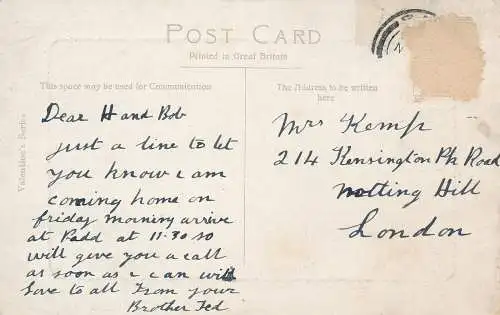 POST CARD
Printed in Great Britain
This space may be used for Communication
The Address to be written
here
Valentine's Series
Dear H and Bob
just a line to let
you know i am
coming home on
friday morning arrive
at Padd at 11.30 so
will give you a call
as soon as i can with
love to all From your
Brother Ted
Mrs Kemp
214 Kensington Pk Road
Notting Hill
London